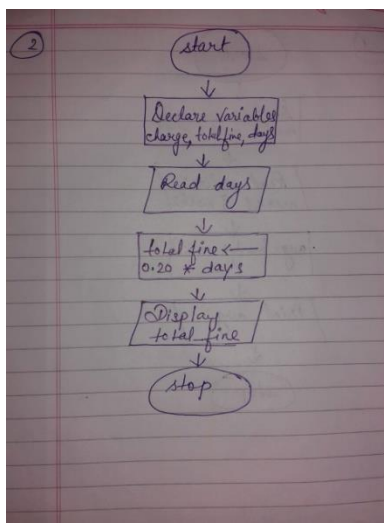 2
start
Declare variables
charge, total fine, days
Read days
total fine ←
0.20 * days
Display
total fine
stop